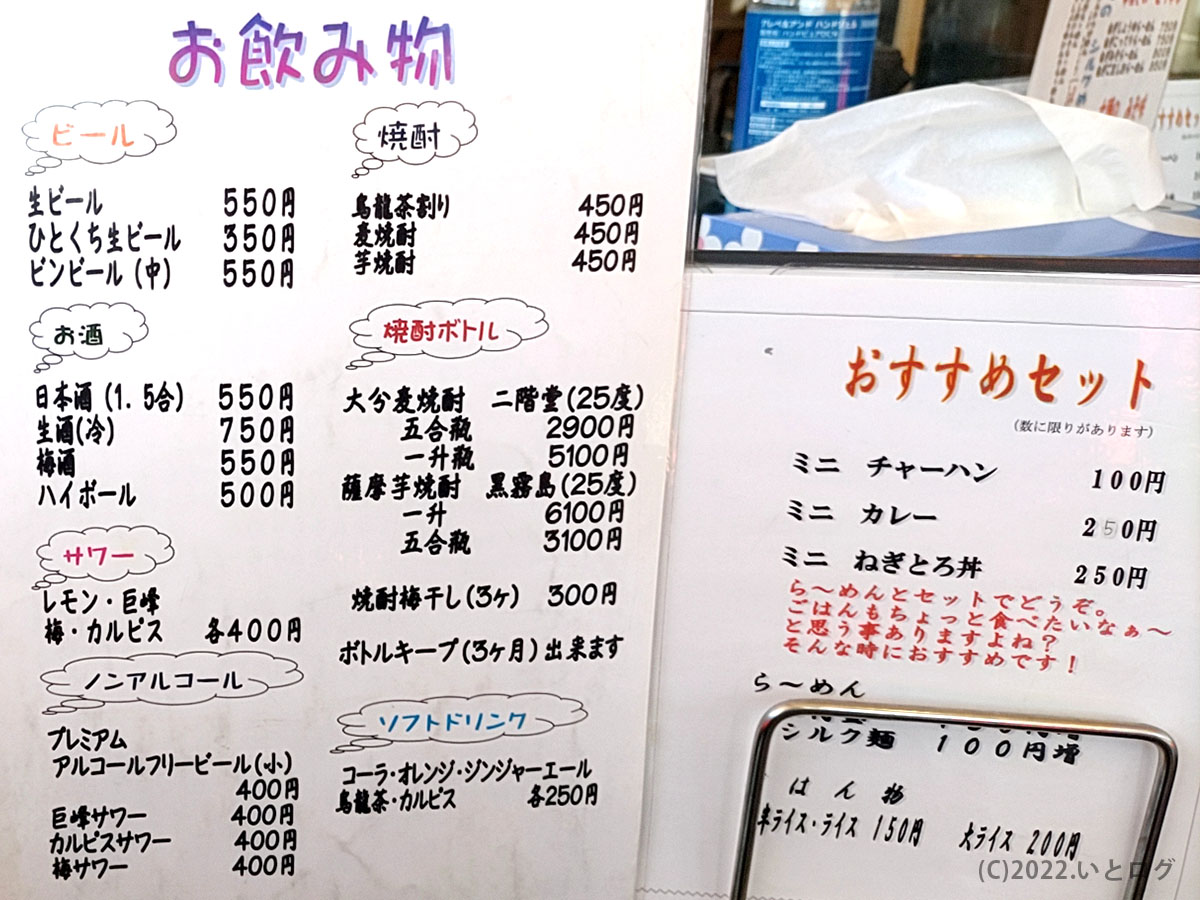 お飲み物
ビール
生ビール 550円
ひとくち生ビール 350円
ビンビール(中) 550円
お酒
日本酒(1.5合) 550円
生酒(冷) 750円
梅酒 550円
ハイボール 500円
サワー
レモン・巨峰
梅・カルピス 各400円
ノンアルコール
プレミアム
アルコールフリービール(小)
400円
巨峰サワー 400円
カルピスサワー 400円
梅サワー 400円
焼酎
烏龍茶割り 450円
麦焼酎 450円
芋焼酎 450円
焼酎ボトル
大分麦焼酎 二階堂(25度)
五合瓶 2900円
一升瓶 5100円
薩摩芋焼酎 黒霧島(25度)
一升 6100円
五合瓶 3100円
焼酎梅干し(3ヶ) 300円
ボトルキープ(3ヶ月)出来ます
ソフトドリンク
コーラ・オレンジ・ジンジャーエール
烏龍茶・カルピス 各250円
おすすめセット
(数に限りがあります)
ミニ チャーハン 100円
ミニ カレー 250円
ミニ ねぎとろ丼 250円
ら〜めんとセットでどうぞ。
ごはんもちょっと食べたいなぁ〜
と思う事ありますよね?
そんな時におすすめです!
ら〜めん
シルク麺 100円増
はん物
半ライス・ライス 150円 大ライス 200円
(C)2022.いとログ